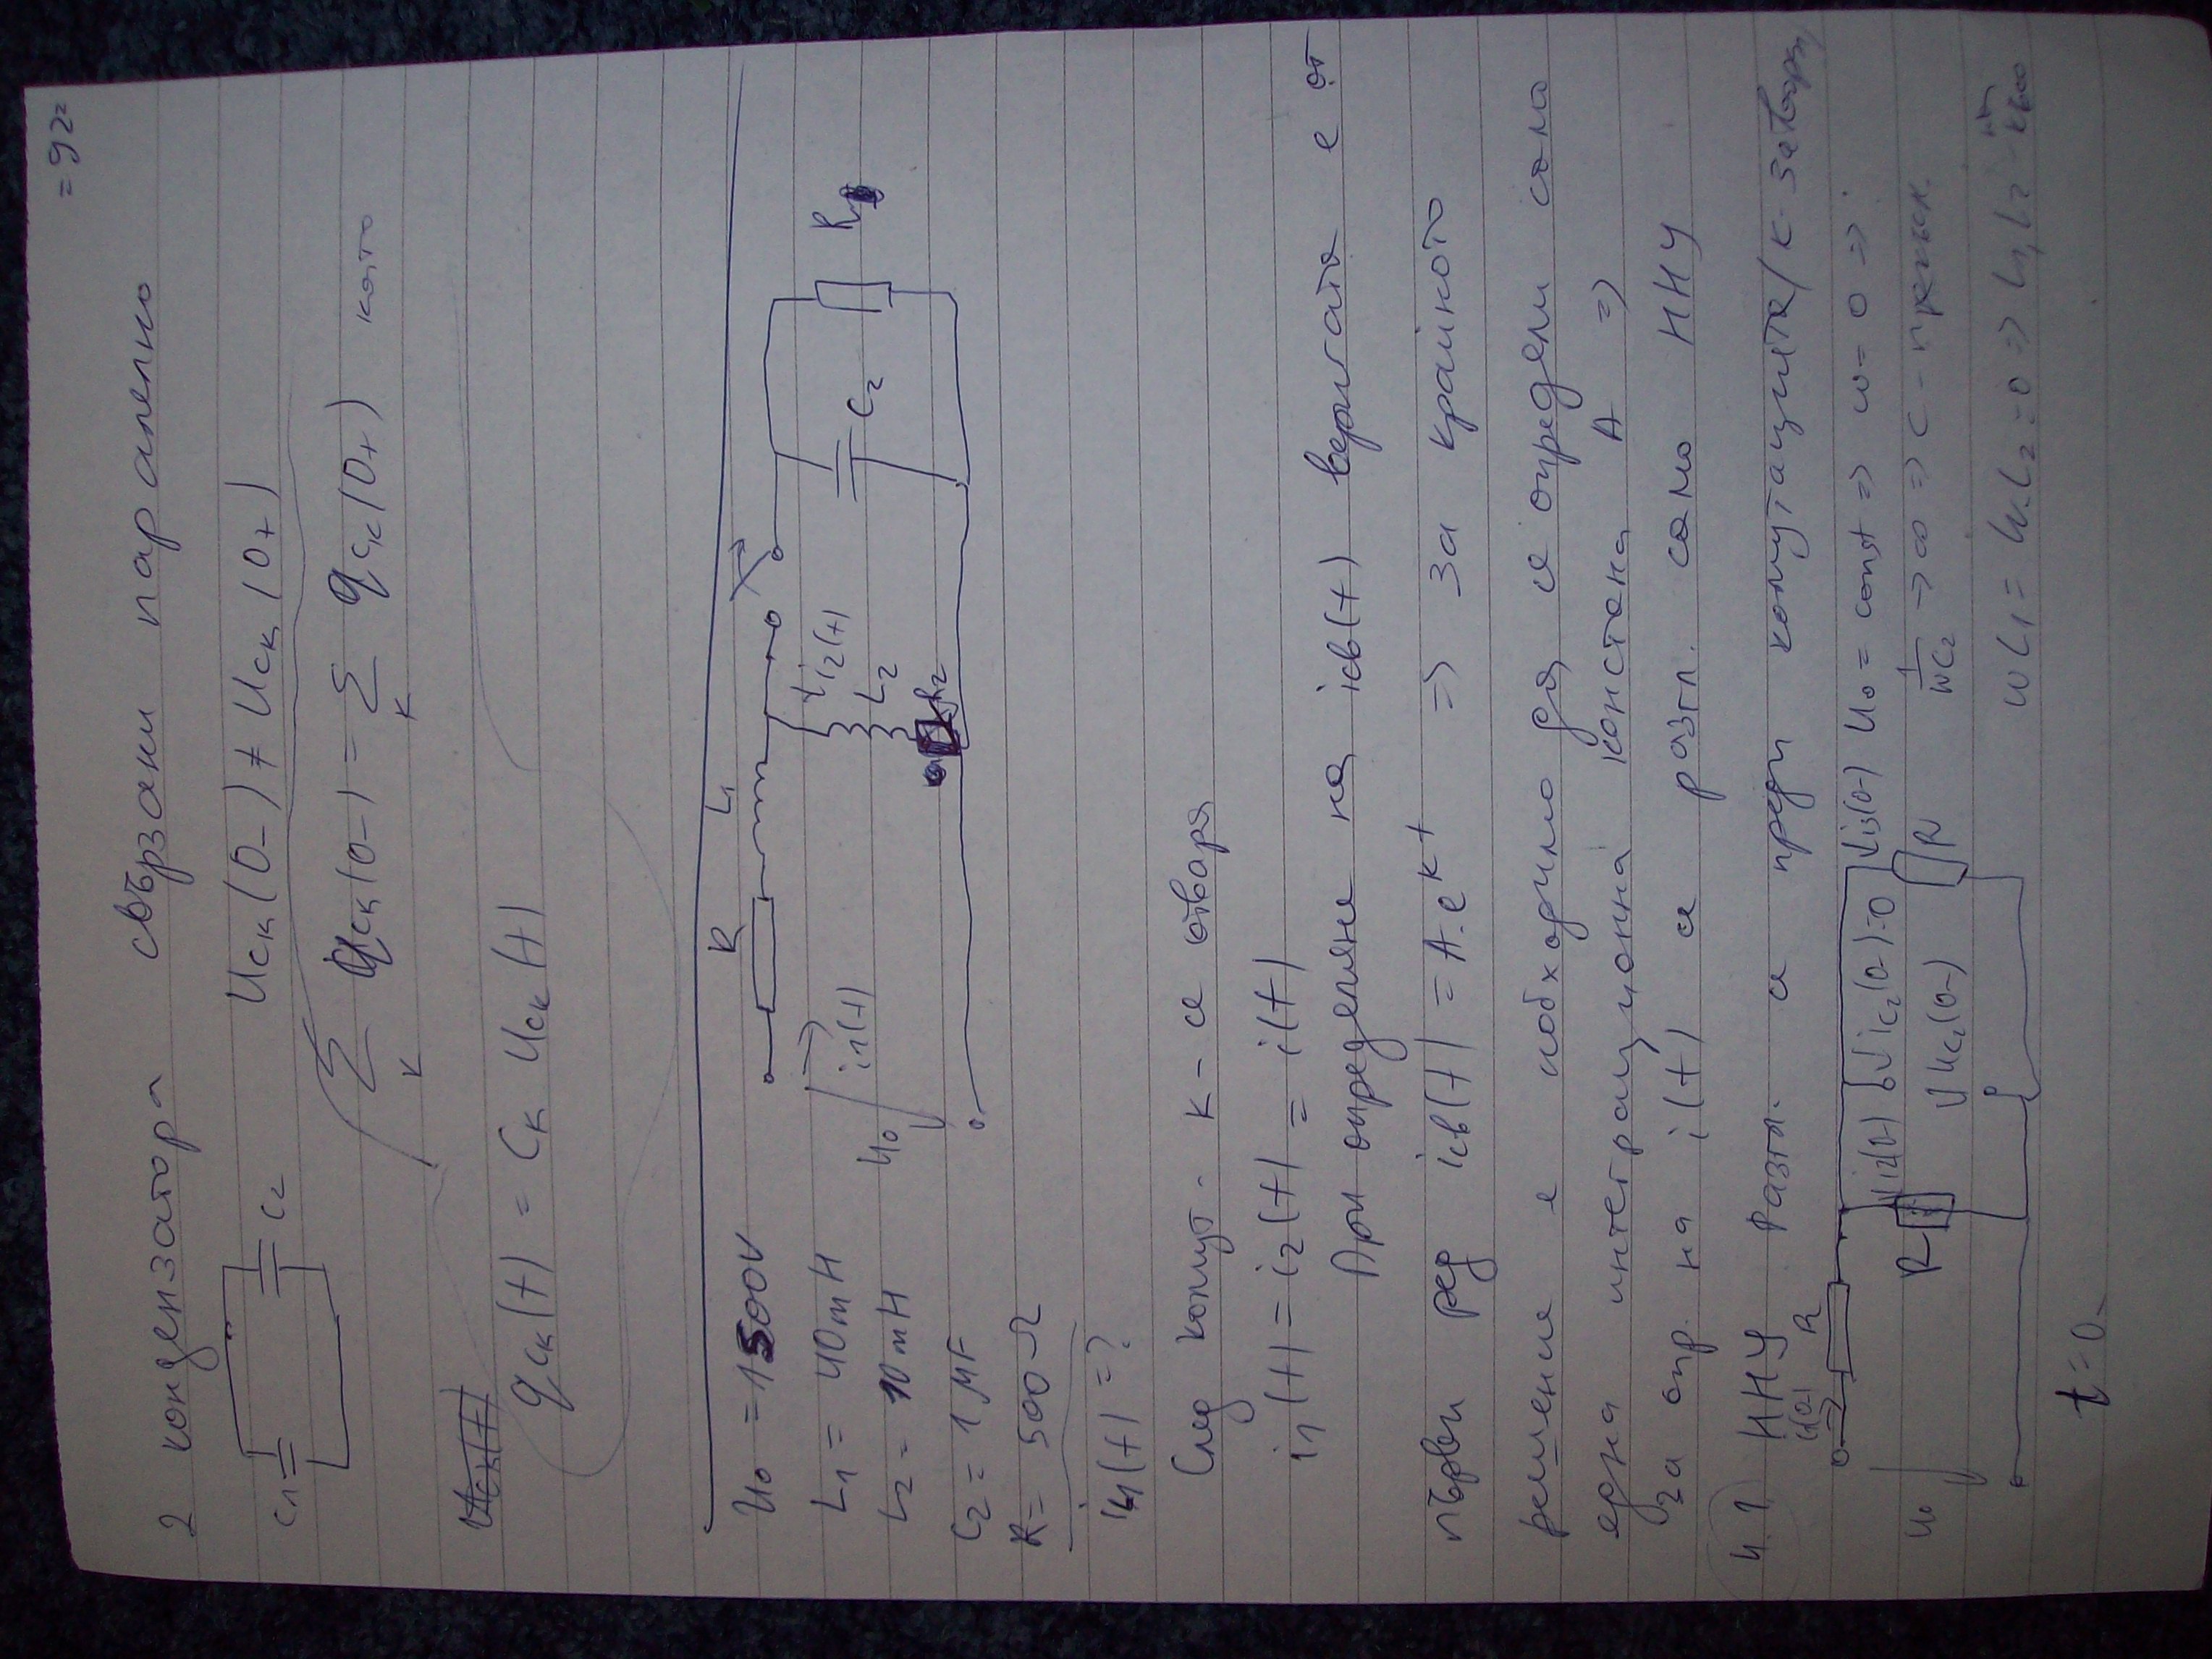 = 92 =
2 кондензатора свързани паралелно
C1 C2 Uck(0-) ≠ Uck(0+)
∑ qck(0-) = ∑ qck(0+) като
к к
Uck(t)
qck(t) = Ck Uck(t)
U0 = 1500V
L1 = 40mH
L2 = 10mH
C2 = 1μF
R = 500Ω
R L1
i1(t) i2(t) L2 C2 R
U0
След комут. к - се отваря
i1(t) = i2(t) = i(t)
При определяне на iсв(t) веригата е от
първи ред iсв(t) = A.e^kt => за крайното
решение е необходимо да се определи само
една интеграционна константа A =>
за опр. на i(t) се разгл. само ННУ
4.1 ННУ Разгл. се преди комутацията/к-затворен/
i1(0-) R i2(0-) ic2(0-)=0 i3(0-) U0 = const => ω = 0 =>
U0 R Uc2(0-) R 1/ωC2 → ∞ => C - прекъсн.
ωL1 = ωL2 = 0 => L1, L2
t=0-